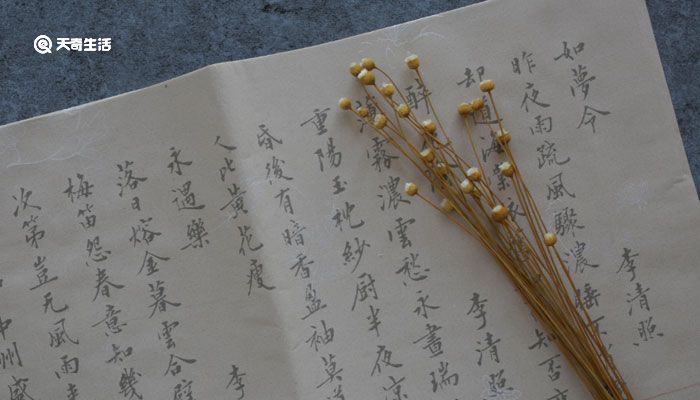 天奇生活
如夢令 李清照
昨夜雨疏風驟濃睡不
却道海棠依 知否
醉 李清照
薄霧濃雲愁永晝瑞
重陽玉枕紗厨半夜涼
昏後有暗香盈袖莫道
人比黃花瘦
永遇樂 李
落日熔金暮雲合璧
梅笛怨春意知幾
次第豈无風雨
中州盛